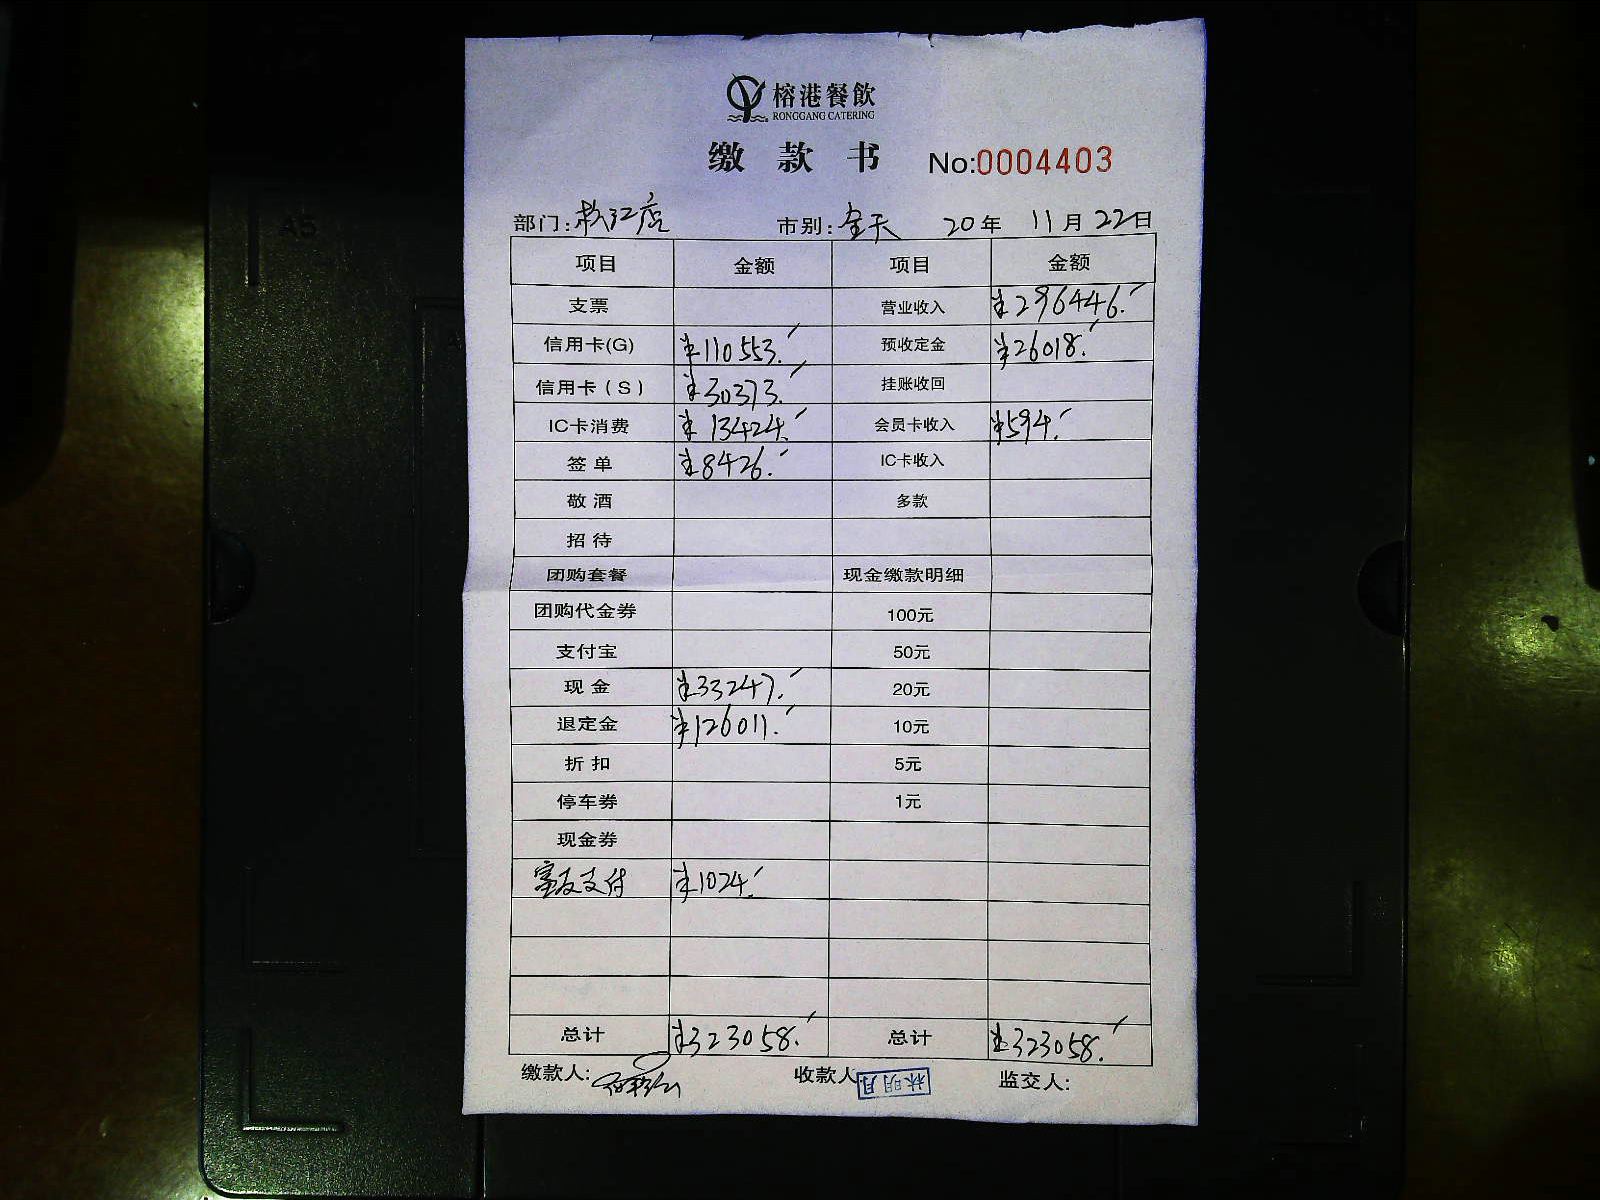 榕港餐飲
RONGGANG CATERING
缴款书 No:0004403
部门:松江店 市别:全天 20年 11月22日
项目 金额 项目 金额
支票 营业收入 ¥296446.
信用卡(G) ¥110553. 预收定金 ¥26018.
信用卡(S) ¥30373. 挂账收回
IC卡消费 ¥13424. 会员卡收入 ¥594.
签单 ¥8426. IC卡收入
敬酒 多款
招待
团购套餐 现金缴款明细
团购代金券 100元
支付宝 50元
现金 ¥33247. 20元
退定金 ¥126011. 10元
折扣 5元
停车券 1元
现金券
富友支付 ¥1024.
总计 ¥323058. 总计 ¥323058.
缴款人: 收款人 林明月 监交人: